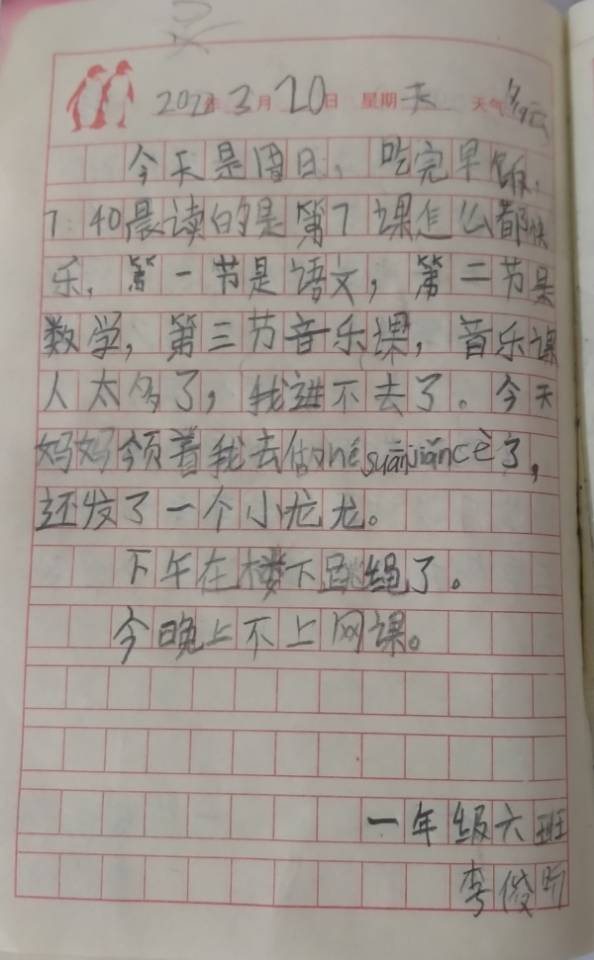 2022年3月20日 星期天 天气多云
今天是周日，吃完早饭，
7:40晨读的是第7课怎么都快
乐，第一节是语文，第二节是
数学，第三节音乐课，音乐课
人太多了，我进不去了。今天
妈妈领着我去做hésuānjiǎncè了，
还发了一个小龙龙。
下午在楼下跳绳了。
今晚上不上网课。
一年级六班
李俊昕